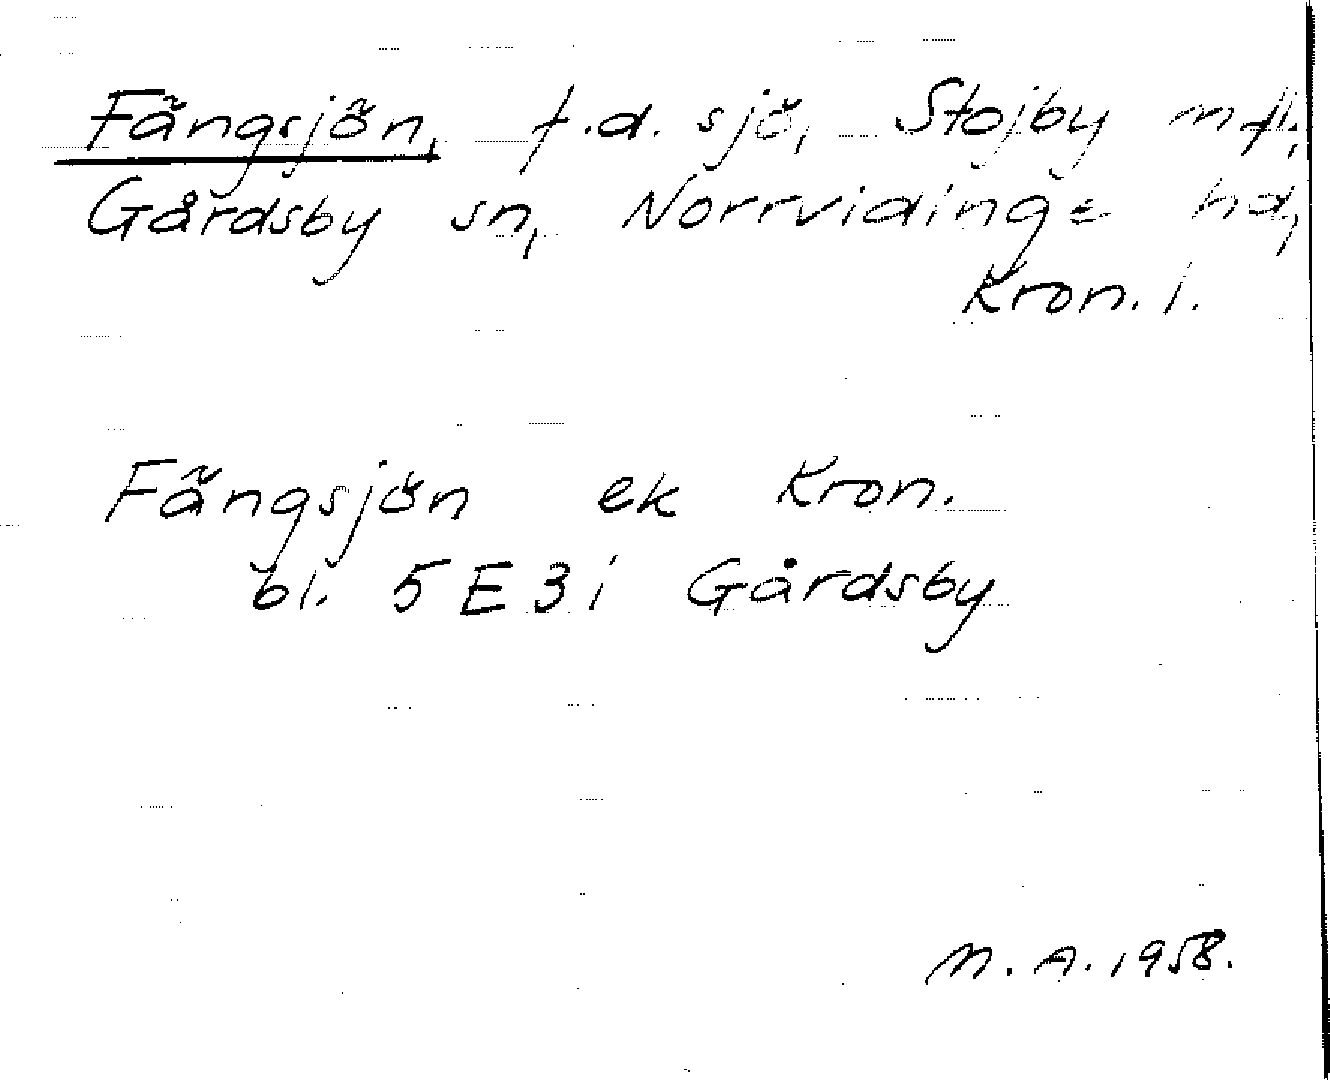 Fängsjön, f.d. sjö, Stojby mfl.,
Gårdsby sn, Norrvidinge hd,
Kron. l.
Fängsjön ek Kron.
bl. 5 E 3 i Gårdsby
M. A. 1958.